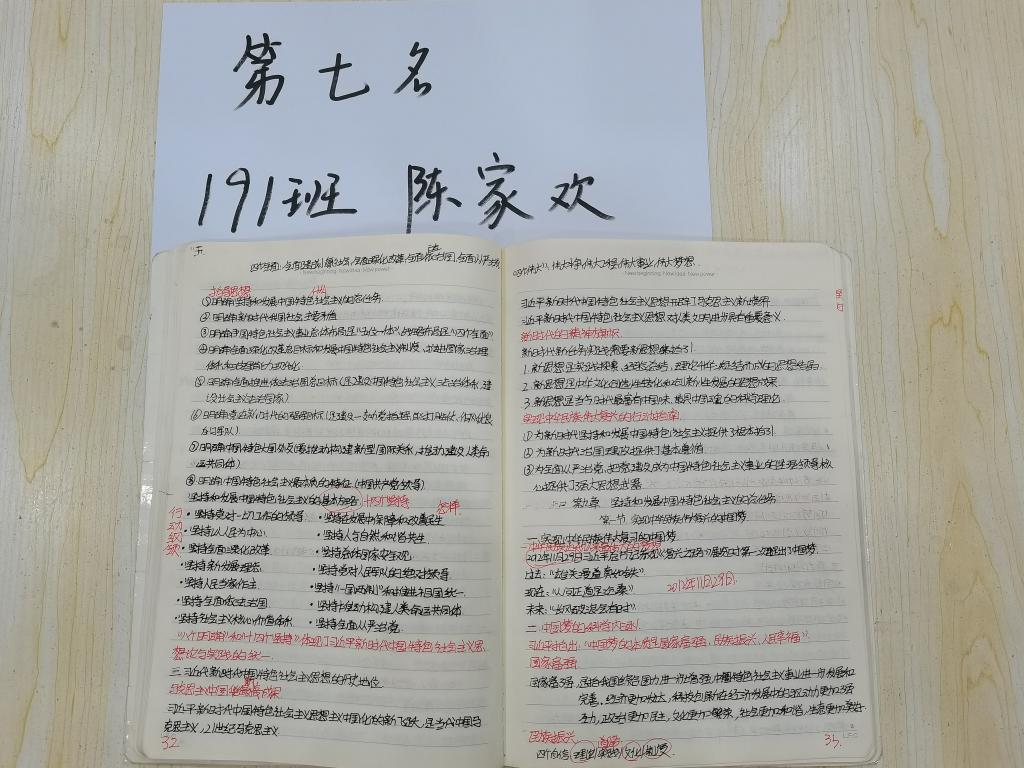 第七名
191班 陈家欢
New beginning, New idea, New power
指导思想
①明确坚持和发展中国特色社会主义的总任务
②明确新时代我国社会主要矛盾
③明确中国特色社会主义事业总体布局是"五位一体",战略布局是"四个全面"
④明确全面深化改革总目标
⑤明确全面推进依法治国总目标(是建设中国特色社会主义法治体系,建
设社会主义法治国家)
⑥明确党在新时代的强军目标
的军队)
⑦明确中国特色大国外交要推动构建新型国际关系,推动建设人类命
运共同体)
⑧明确中国特色社会主义最本质的特征(中国共产党领导)
坚持和发展中国特色社会主义的基本方略 十四个坚持 怎样
行动纲领
·坚持党对一切工作的领导 ·坚持在发展中保障和改善民生
·坚持以人民为中心 ·坚持人与自然和谐共生
·坚持全面深化改革 ·坚持总体国家安全观
·坚持新发展理念 ·坚持党对人民军队的绝对领导
·坚持人民当家作主 ·坚持"一国两制"和推进祖国统一
·坚持全面依法治国 ·坚持推动构建人类命运共同体
·坚持社会主义核心价值体系 ·坚持全面从严治党
"八个明确"和"十四个坚持"体现了习近平新时代中国特色社会主义思
想理论与实践的统一
三.习近平新时代中国特色社会主义思想的历史地位
马克思主义中国化最新成果
习近平新时代中国特色社会主义思想主义中国化的新飞跃,是当代中国马
克思主义,21世纪马克思主义.
32
"四个伟大":伟大斗争,伟大工程,伟大事业,伟大梦想.
New beginning, New idea, New power
习近平新时代中国特色社会主义思想开辟了马克思主义新境界
习近平新时代中国特色社会主义思想对人类文明进步具有重要意义.
新时代的精神旗帜
新时代新任务实践需要新思想来指引
2.新思想是中华文化创造性转化和创新性发展的思想成果.
3.新思想是当今时代最富有中国味
实现中华民族伟大复兴的行动指南
①为新时代坚持和发展中国特色社会主义提供了根本指引.
②为新时代治国理政提供了基本遵循
③为全面从严治党,把党建设成为中国特色社会主义事业的坚强领导核
心提供了强大思想武器
第九章 坚持和发展中国特色社会主义的总任务
第一节 实现中华民族伟大复兴的中国梦
一.实现中华民族伟大复兴的中国梦
2012年11月29日习近平
过去:"雄关漫道真如铁"
现在:"人间正道是沧桑" 2012年11月29日.
未来:"长风破浪会有时"
二.中国梦的科学内涵
习近平指出,"中国梦的本质是国家富强,民族振兴,人民幸福".
国家富强
国家富强,是指我国综合国力进一步增强,中国特色社会主义事业进一步发展和
完善,经济更加发达,科技创新在经济发展中的驱动力更加强
劲,政治更加民主,文化更加繁荣,社会更加和谐,生态更加美好
民族振兴
四个自信 道路 理论 文化 制度